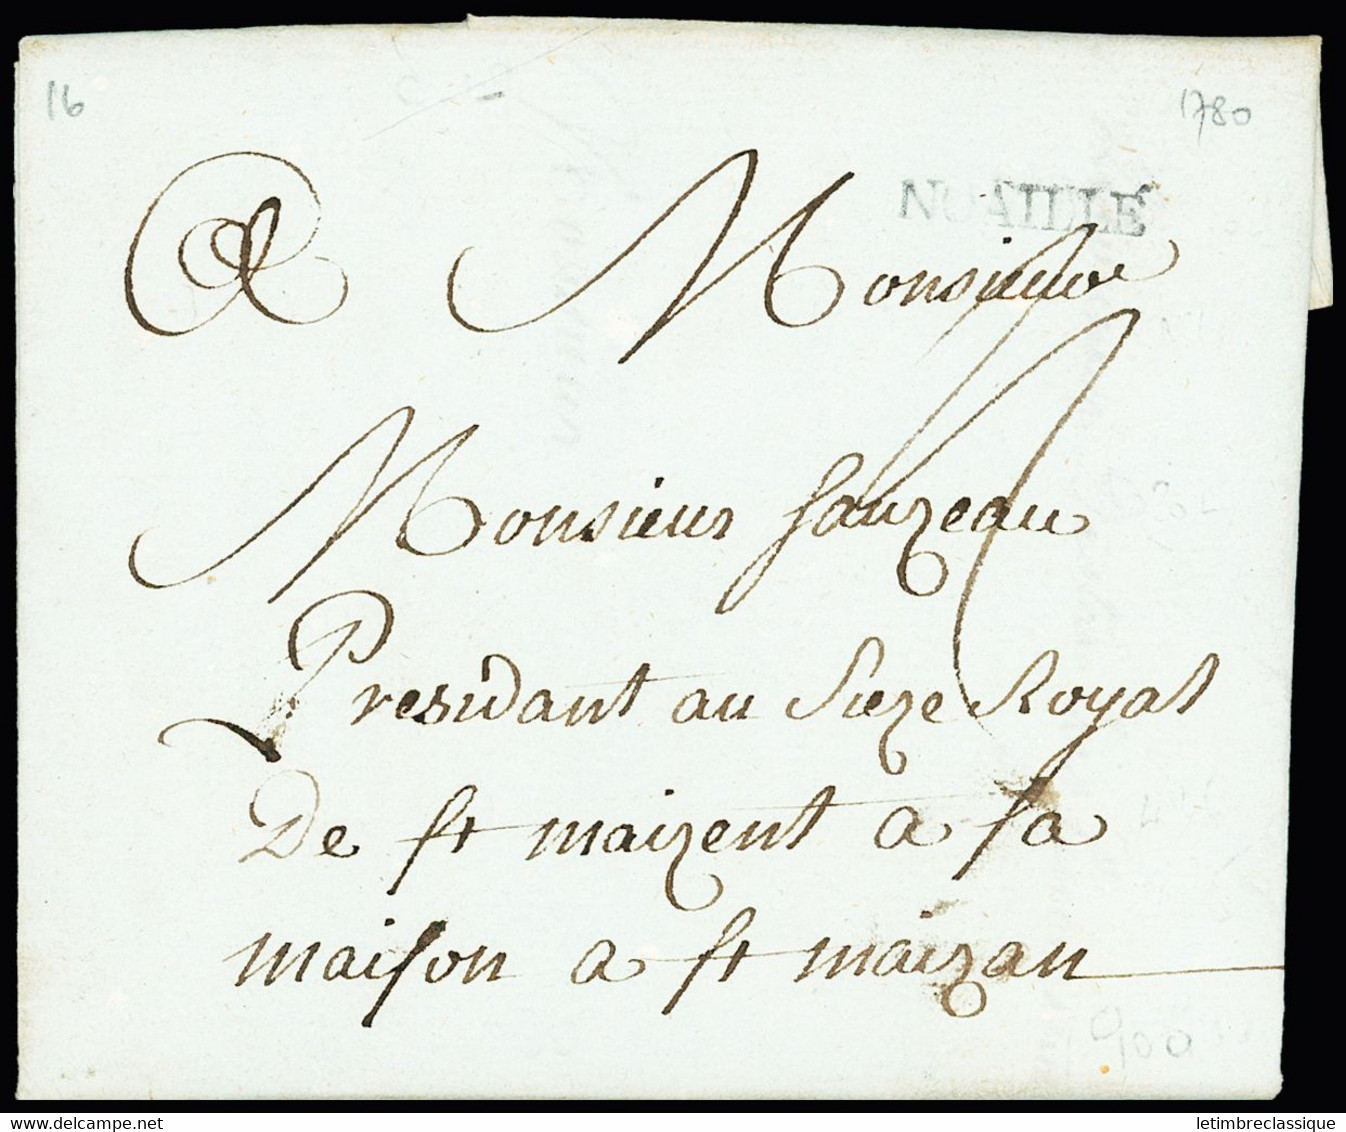 16
1780
NOAILLÉ
A Monsieur
Monsieur Sauzeau
Presidant au Sieze Royal
De st maizent a sa
maison a st maizan
900
delcampe.net
letimbreclassique